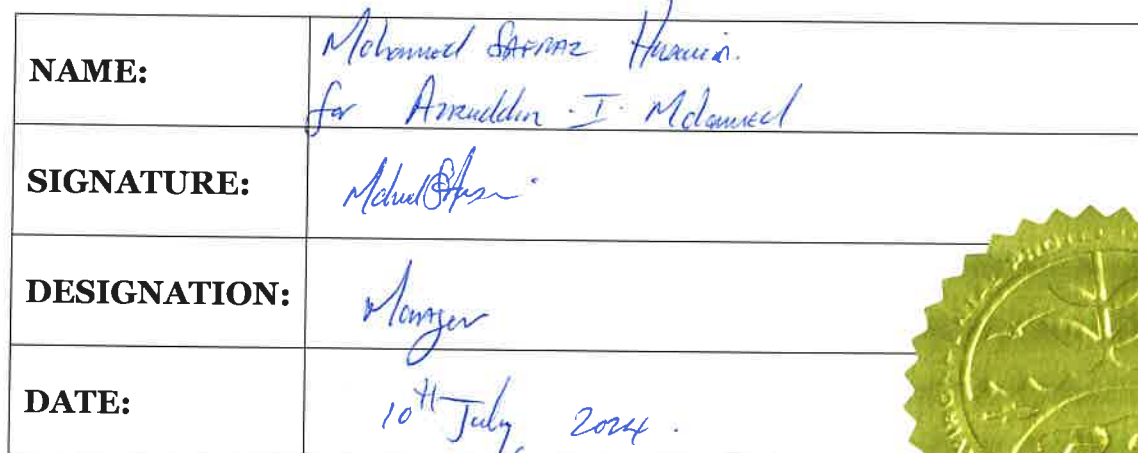 NAME:
Mohammed SAFRAZ Hussain.
for Azruddin . I . Mohamed
SIGNATURE:
DESIGNATION:
Manager
DATE:
10TH July 2024 .